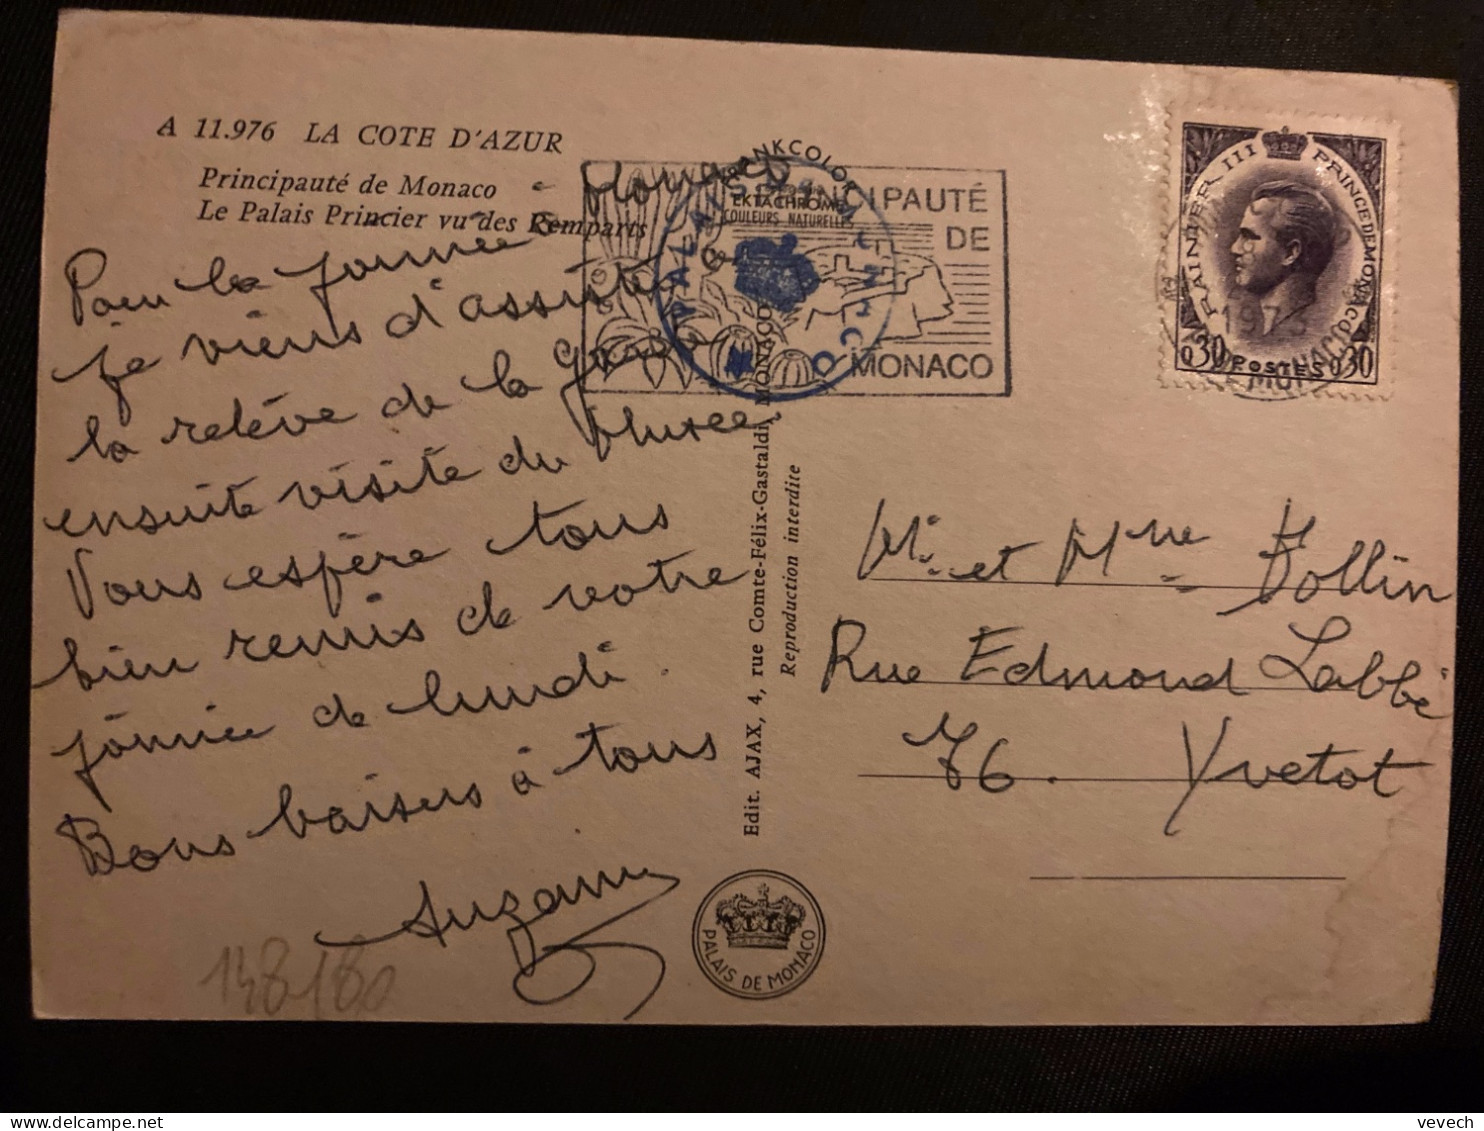 A 11.976 LA COTE D'AZUR
Principauté de Monaco
Le Palais Princier vu des Remparts
Pour la journée à Monaco
je viens d'assister à
la relève de la garde
ensuite visite du Musée
Vous espère tous
bien remis de votre
journée de lundi.
Bons baisers à tous
Suzanne
148/180
FRANKCOLOR
EKTACHROME
COULEURS NATURELLES
PALAIS DE MONACO
PRINCIPAUTÉ
DE
MONACO
Edit. AJAX, 4, rue Comte-Félix-Gastaldi, MONACO
Reproduction interdite
PALAIS DE MONACO
RAINIER III PRINCE DE MONACO
1973
0,30 POSTES 0,30
Mr. et Mme Hollin
Rue Edmond Labbé
76. Yvetot
vevech